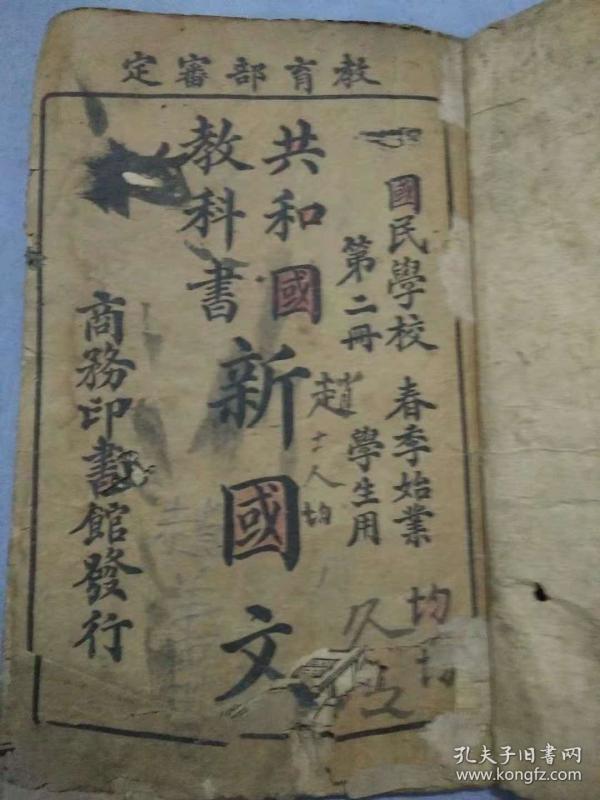 教育部審定
國民學校 春季始業
第二冊 學生用
共和國
教科書
新國文
商務印書館發行
趙士人均
均
均
久
孔夫子旧书网
www.kongfz.com